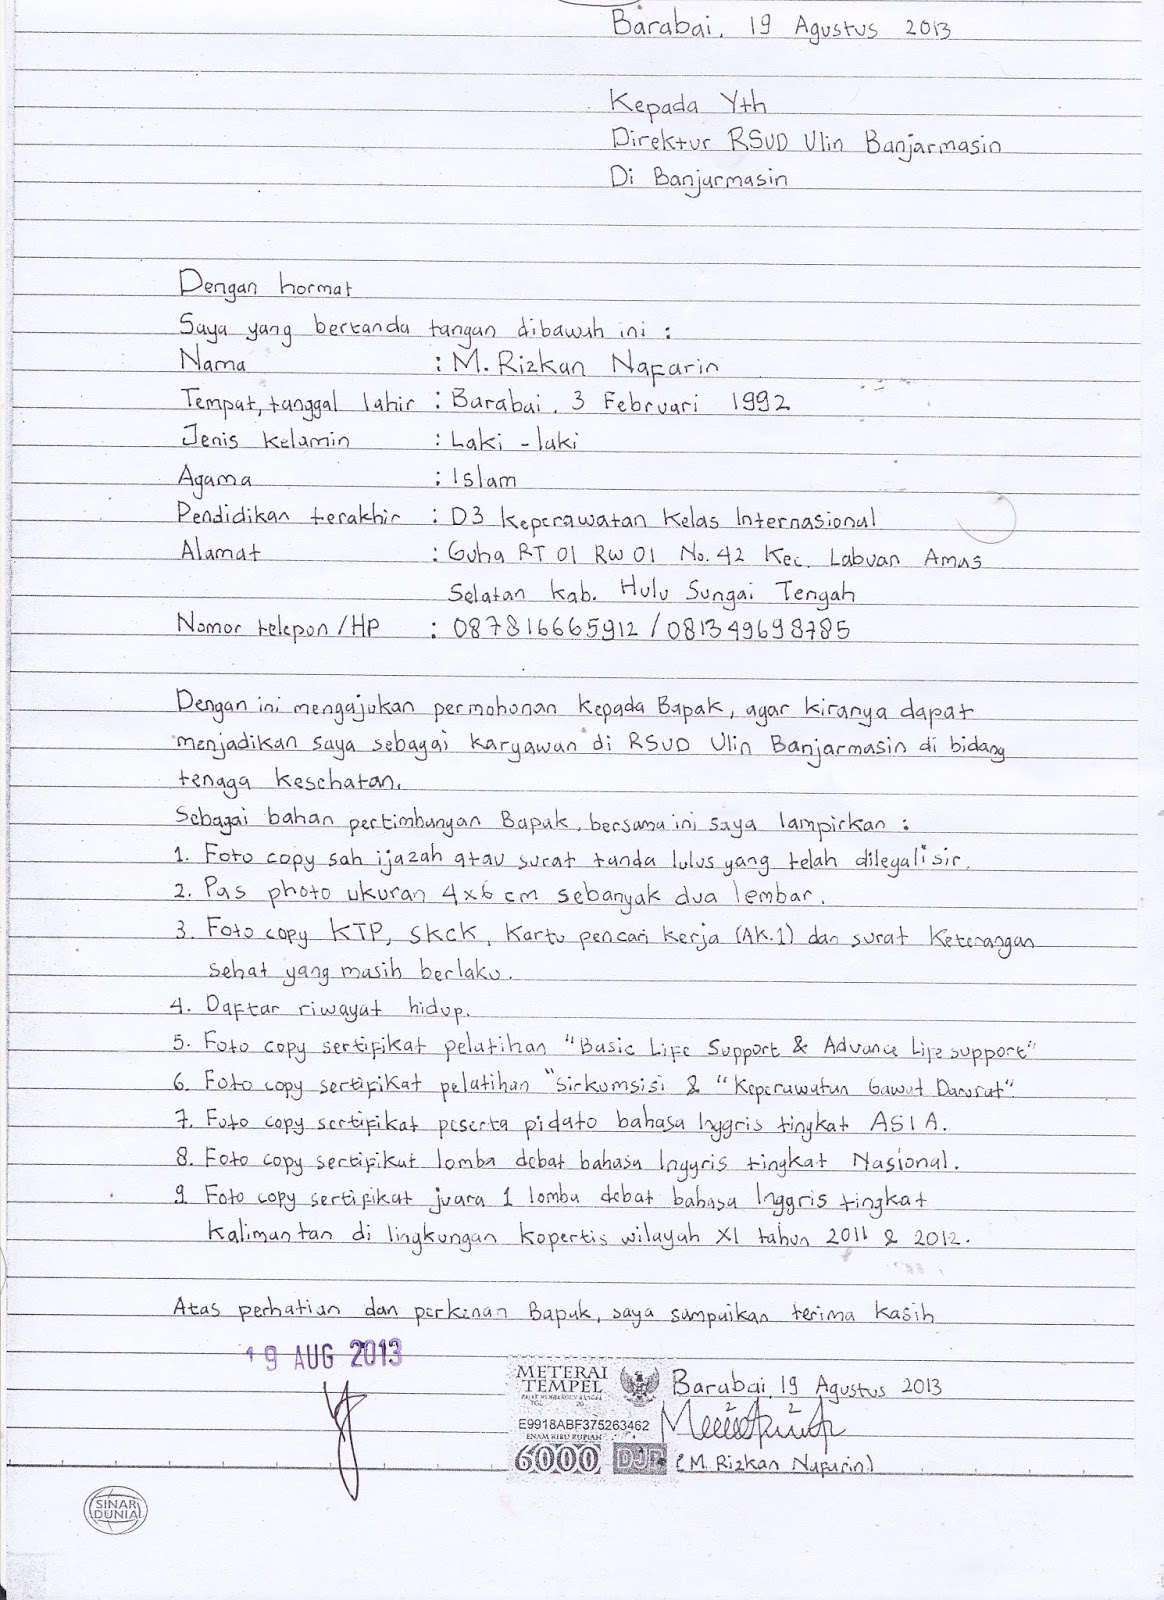 Barabai, 19 Agustus 2013
Kepada Yth
Direktur RSUD Ulin Banjarmasin
Di Banjarmasin
Dengan hormat
Saya yang bertanda tangan dibawah ini :
Nama : M. Rizkan Nafarin
Tempat, tanggal lahir : Barabai, 3 Februari 1992
Jenis Kelamin : Laki - laki
Agama : Islam
Pendidikan terakhir : D3 Keperawatan Kelas Internasional
Alamat : Guha RT 01 RW 01 No. 42 Kec. Labuan Amas
Selatan Kab. Hulu Sungai Tengah
Nomor telepon / HP : 087816665912 / 081349698785
Dengan ini mengajukan permohonan kepada Bapak, agar kiranya dapat
menjadikan saya sebagai karyawan di RSUD Ulin Banjarmasin di bidang
tenaga kesehatan.
Sebagai bahan pertimbangan Bapak, bersama ini saya lampirkan :
1. Foto copy sah ijazah atau surat tanda lulus yang telah dilegalisir.
2. Pas photo ukuran 4x6 cm sebanyak dua lembar.
3. Foto copy KTP, SKCK, Kartu pencari kerja (AK.1) dan surat Keterangan
sehat yang masih berlaku.
4. Daftar riwayat hidup.
5. Foto copy sertifikat pelatihan "Basic Life Support & Advance Life support"
6. Foto copy sertifikat pelatihan "Sirkumsisi & "Keperawatan Gawat Darurat"
7. Foto copy sertifikat peserta pidato bahasa Inggris tingkat ASIA.
8. Foto copy sertifikat lomba debat bahasa Inggris tingkat Nasional.
9. Foto copy sertifikat juara 1 lomba debat bahasa Inggris tingkat
Kalimantan di lingkungan kopertis wilayah XI tahun 2011 & 2012.
Atas perhatian dan perkenan Bapak, saya sampaikan terima kasih
19 AUG 2013
METERAI
TEMPEL
E9918ABF375263462
ENAM RIBU RUPIAH
6000 DJP
Barabai, 19 Agustus 2013
(M. Rizkan Nafarin)
SINAR
DUNIA